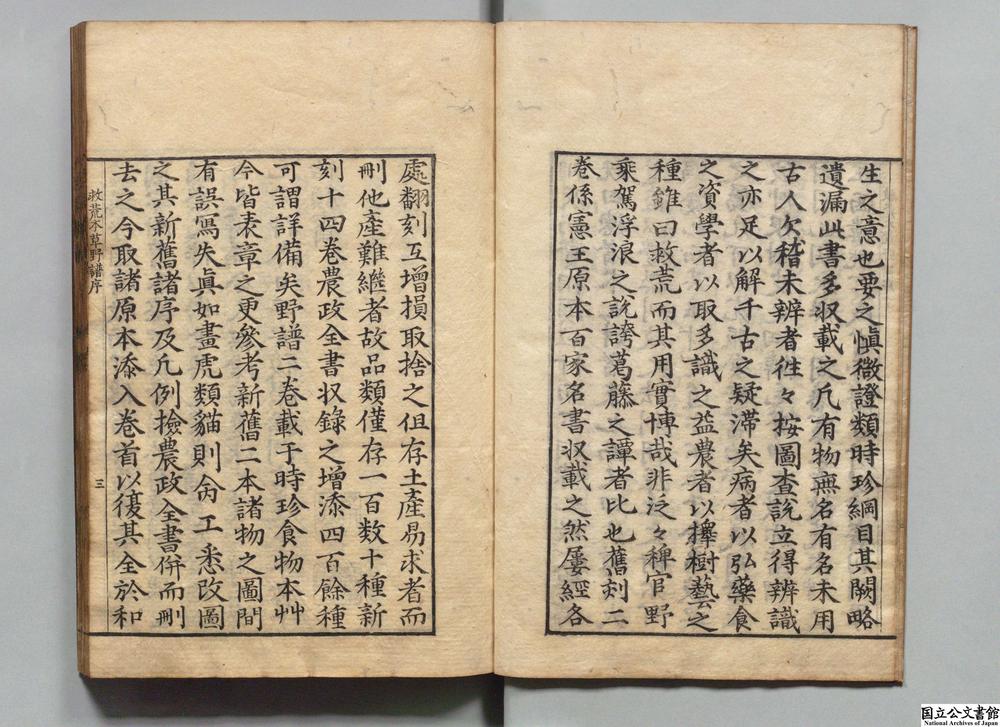 生之意也要之愼微證類時珍綱目其闕略
遺漏此書多収載之凡有物無名有名未用
古人欠稽未辨者徃々按圖查說立得辨識
之亦足以解千古之疑滞矣病者以弘藥食
之資學者以取多識之益農者以擇樹藝之
種雖曰救荒而其用實博哉非泛々稗官野
乘駕浮浪之說誇葛藤之譚者比也舊刻二
卷係憲王原本百家名書収載之然屢經各
處翻刻互增損取捨之但存土產易求者而
刪他產難繼者故品類僅存一百数十種新
刻十四卷農政全書収錄之增添四百餘種
可謂詳備矣野譜二卷載于時珍食物本艸
今皆表章之更參考新舊二本諸物之圖間
有誤寫失眞如畫虎類貓則命工悉改圖
之其新舊諸序及凡例撿農政全書併而刪
去之今取諸原本添入卷首以復其全於和
救荒本草野譜序
三
国立公文書館
National Archives of Japan